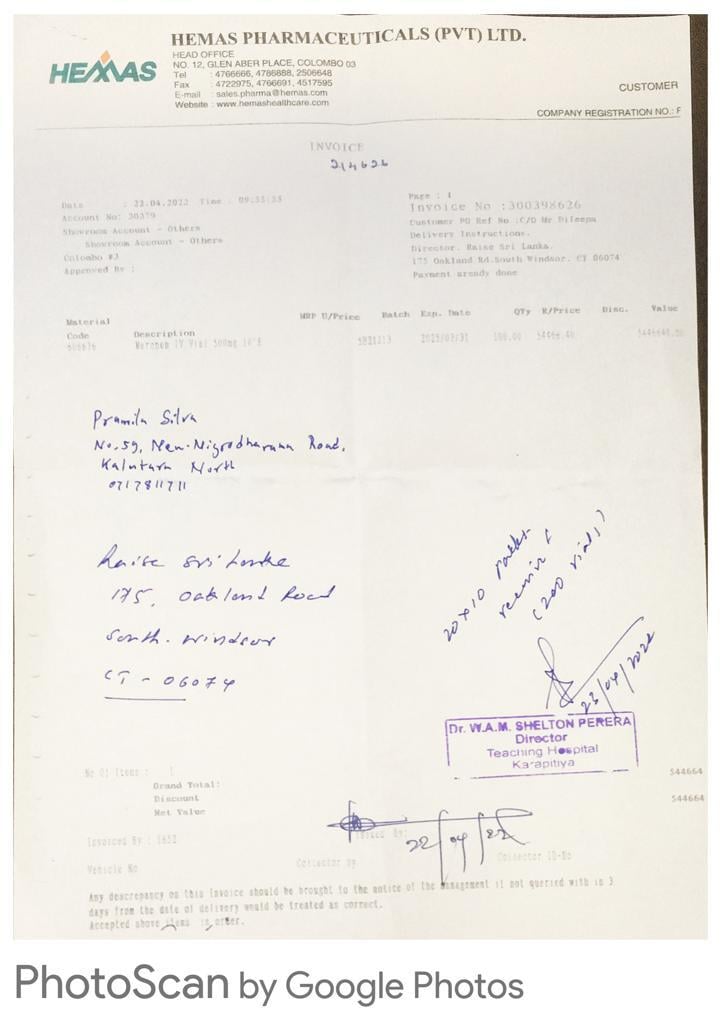 HEMAS
HEMAS PHARMACEUTICALS (PVT) LTD.
HEAD OFFICE
NO. 12, GLEN ABER PLACE, COLOMBO 03
Tel : 4766666, 4786888, 2506648
Fax : 4722975, 4766691, 4517595
E-mail : sales.pharma@hemas.com
Website : www.hemashealthcare.com
CUSTOMER
COMPANY REGISTRATION NO.: F
INVOICE
214626
Date : 22.04.2022 Time : 09:35:35
Account No: 30379
Showroom Account - Others
Showroom Account - Others
Colombo #3
Approved By :
Page : 1
Invoice No :300398626
Customer PO Ref No :C/O Mr Dileepa
Delivery Instructions.
Director. Raise Sri Lanka.
175 Oakland Rd.South Windsor. CT 06074
Payment aready done
Material Code Description MRP U/Price Batch Exp. Date QTy R/Price Disc. Value
IV Vial 500mg 10'S 2025/03/31 100.00 54466.40
Pramila Silva
No. 59, New Nigrodharama Road,
Kalutara North
0717811711
Raise Sri Lanka
175, Oakland Road
South-Windsor
CT - 06074
20x10 packs
(200 vials)
23/04/2022
Dr. W.A.M. SHELTON PERERA
Director
Teaching Hospital
Karapitiya
No Of Items : 1
Grand Total: 544664
Discount
Net Value 544664
Invoiced By : 1652
Issued By:
22/04/22
Vehicle No Collector by Collector ID-No
Any descrepancy on this Invoice should be brought to the notice of the management if not queried with in 3
days from the date of delivery would be treated as correct.
Accepted above items in order.
PhotoScan by Google Photos